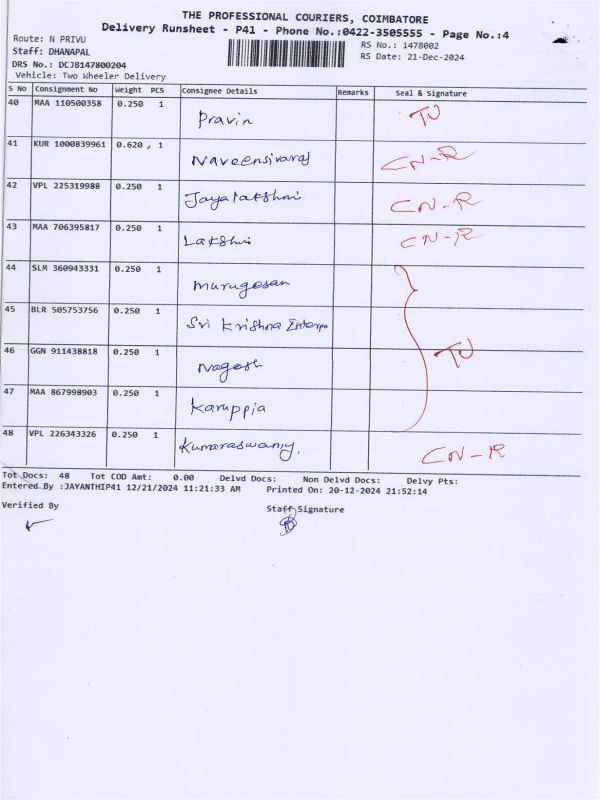 THE PROFESSIONAL COURIERS, COIMBATORE
Delivery Runsheet - P41 - Phone No.:0422-3505555 - Page No.:4
Route: N PRIVU
RS No.: 1478002
Staff: DHANAPAL
RS Date: 21-Dec-2024
DRS No.: DCJB147800204
Vehicle: Two Wheeler Delivery
S No Consignment No Weight PCS Consignee Details Remarks Seal & Signature
40 MAA 110500358 0.250 1 Pravin TU
41 KUR 1000839961 0.620 , 1 Naveensivaraj CN-R
42 VPL 225319988 0.250 1 Jayalakshmi CN-R
43 MAA 706395817 0.250 1 Lakshmi CN-R
44 SLM 360943331 0.250 1 Murugesan
45 BLR 505753756 0.250 1 Sri Krishna
46 GGN 911438818 0.250 1 Nagesh TU
47 MAA 867998903 0.250 1 Karuppia
48 VPL 226343326 0.250 1 Kumaraswamy. CN-R
Tot Docs: 48 Tot COD Amt: 0.00 Delvd Docs: Non Delvd Docs: Delvy Pts:
Entered By :JAYANTHIP41 12/21/2024 11:21:33 AM Printed On: 20-12-2024 21:52:14
Verified By Staff Signature